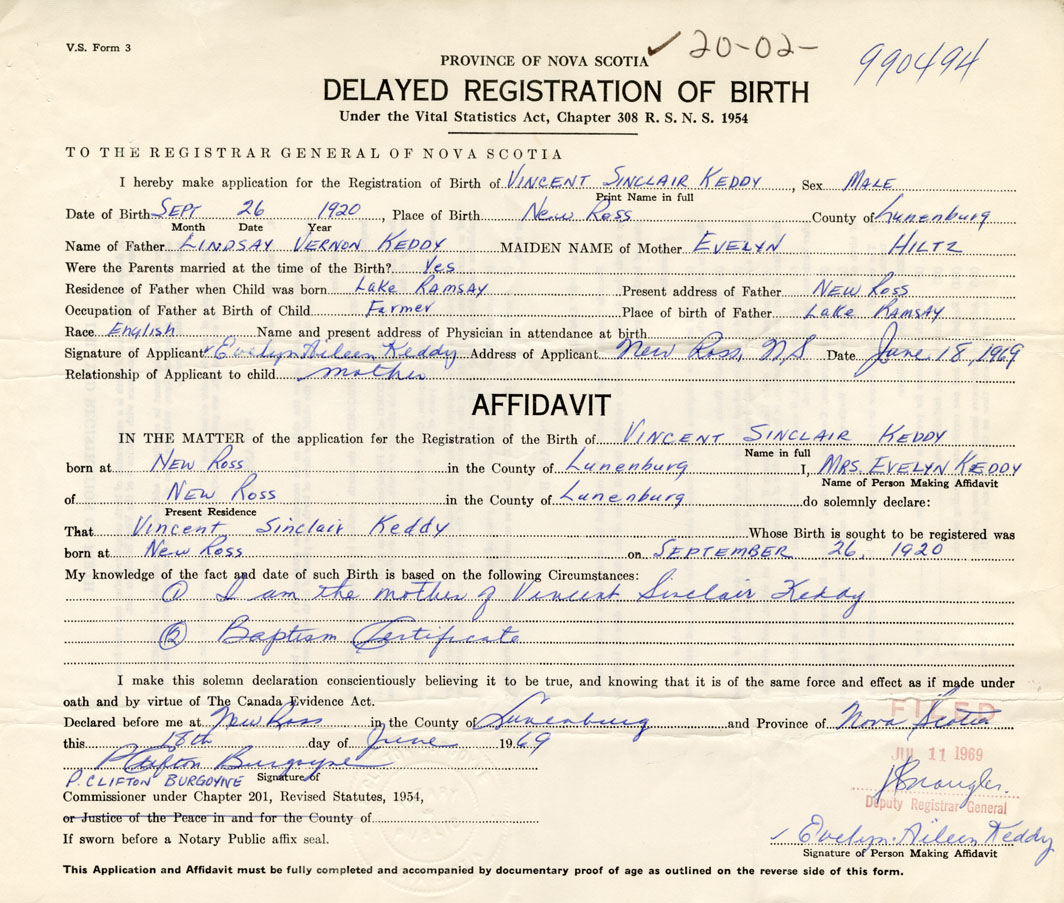 V.S. Form 3
✓ 20-02-
990494
PROVINCE OF NOVA SCOTIA
DELAYED REGISTRATION OF BIRTH
Under the Vital Statistics Act, Chapter 308 R. S. N. S. 1954
TO THE REGISTRAR GENERAL OF NOVA SCOTIA
I hereby make application for the Registration of Birth of VINCENT SINCLAIR KEDDY, Sex MALE
Print Name in full
Date of Birth SEPT 26 1920, Place of Birth New Ross County of Lunenburg
Month Date Year
Name of Father LINDSAY VERNON KEDDY MAIDEN NAME of Mother EVELYN HILTZ
Were the Parents married at the time of the Birth? Yes
Residence of Father when Child was born LAKE RAMSAY Present address of Father NEW ROSS
Occupation of Father at Birth of Child Farmer Place of birth of Father LAKE RAMSAY
Race English Name and present address of Physician in attendance at birth
Signature of Applicant Evelyn Aileen Keddy Address of Applicant New Ross, N.S Date June 18, 1969
Relationship of Applicant to child mother
AFFIDAVIT
IN THE MATTER of the application for the Registration of the Birth of VINCENT SINCLAIR KEDDY
Name in full
born at NEW ROSS in the County of Lunenburg I, MRS. EVELYN KEDDY
Name of Person Making Affidavit
of NEW ROSS in the County of Lunenburg do solemnly declare:
Present Residence
That Vincent Sinclair Keddy Whose Birth is sought to be registered was
born at New Ross on SEPTEMBER 26, 1920
My knowledge of the fact and date of such Birth is based on the following Circumstances:
① I am the mother of Vincent Sinclair Keddy
② Baptism Certificate
I make this solemn declaration conscientiously believing it to be true, and knowing that it is of the same force and effect as if made under
oath and by virtue of The Canada Evidence Act.
FILED
Declared before me at New Ross in the County of Lunenburg and Province of Nova Scotia
this 18th day of June 1969
P Clifton Burgoyne
JUL 11 1969
P. CLIFTON BURGOYNE Signature of
Commissioner under Chapter 201, Revised Statutes, 1954,
Deputy Registrar General
or Justice of the Peace in and for the County of
If sworn before a Notary Public affix seal.
Evelyn Aileen Keddy
Signature of Person Making Affidavit
This Application and Affidavit must be fully completed and accompanied by documentary proof of age as outlined on the reverse side of this form.